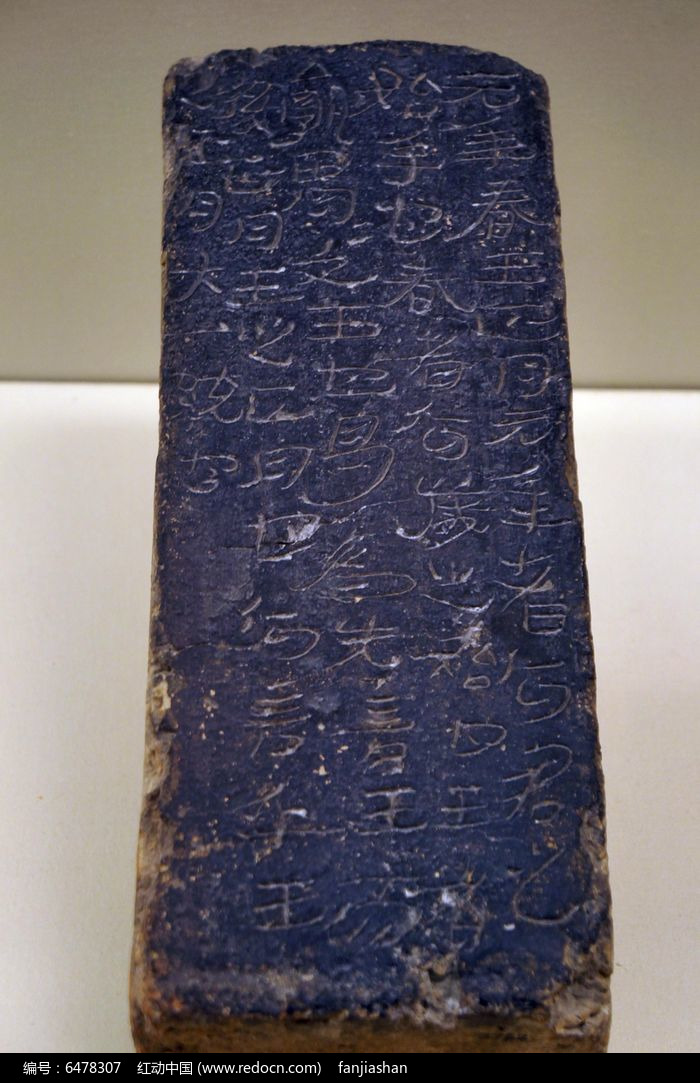 元年春王正月元年者何君之
始年也春者何歲之始也王者
孰胃文王也曷為先言王而
後正月王之正月也何言乎王
之正月大一統也
编号：6478307 红动中国 (www.redocn.com) fanjiashan